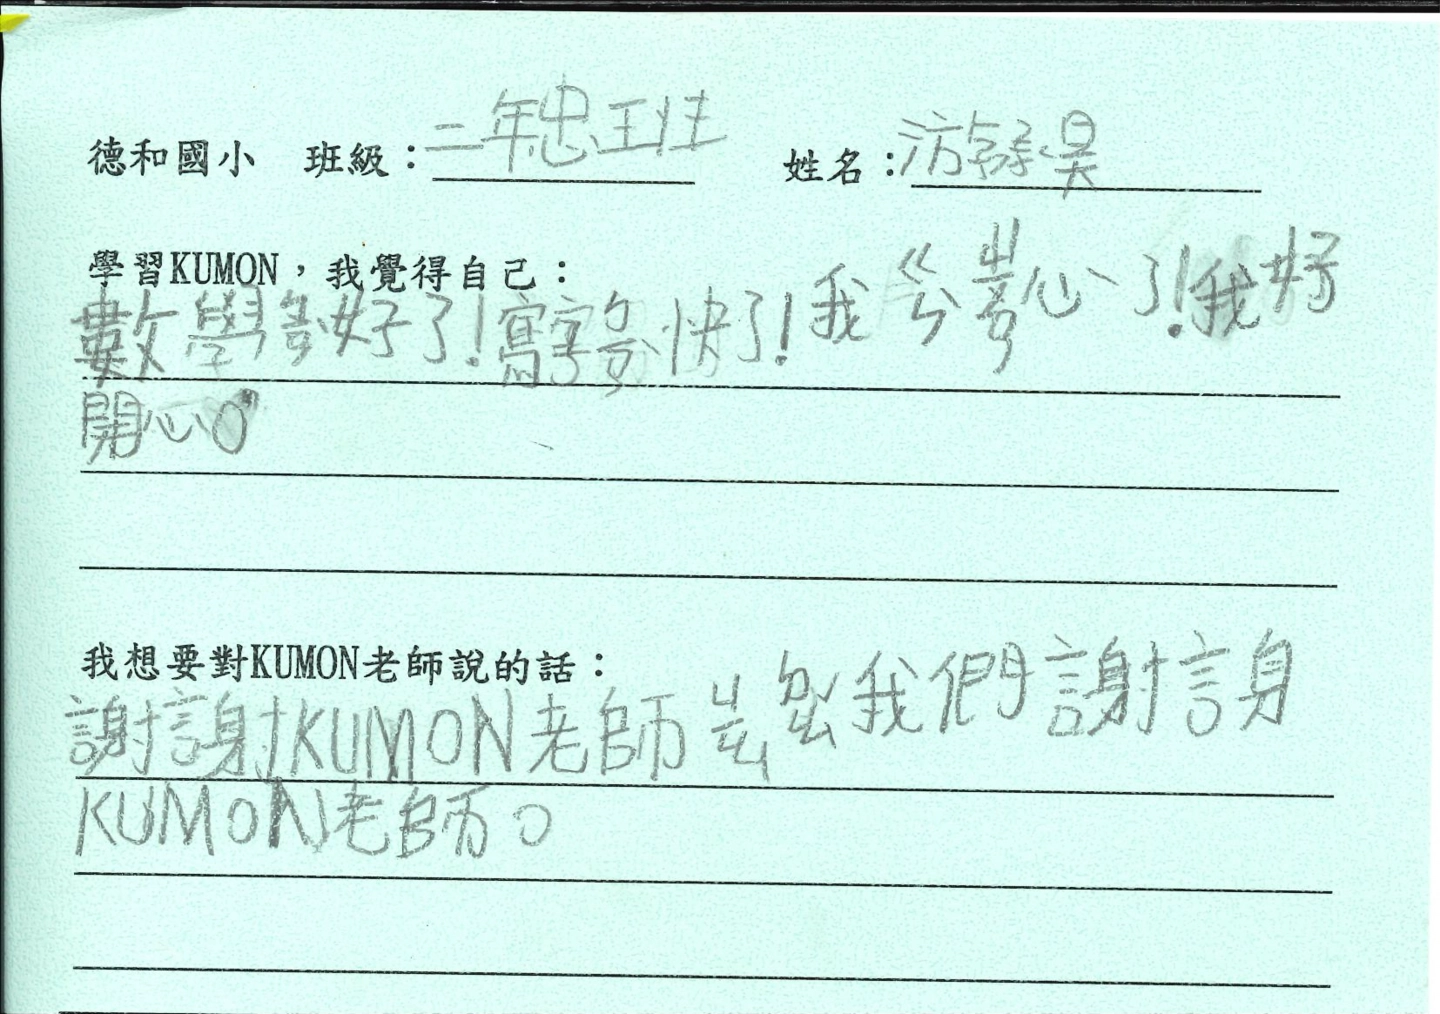 德和國小 班級：二年忠班 姓名：游昊
學習KUMON，我覺得自己：
數學好了！寫字快了！我心了！我好
開心。
我想要對KUMON老師說的話：
謝謝KUMON老師我們謝謝
KUMON老師。